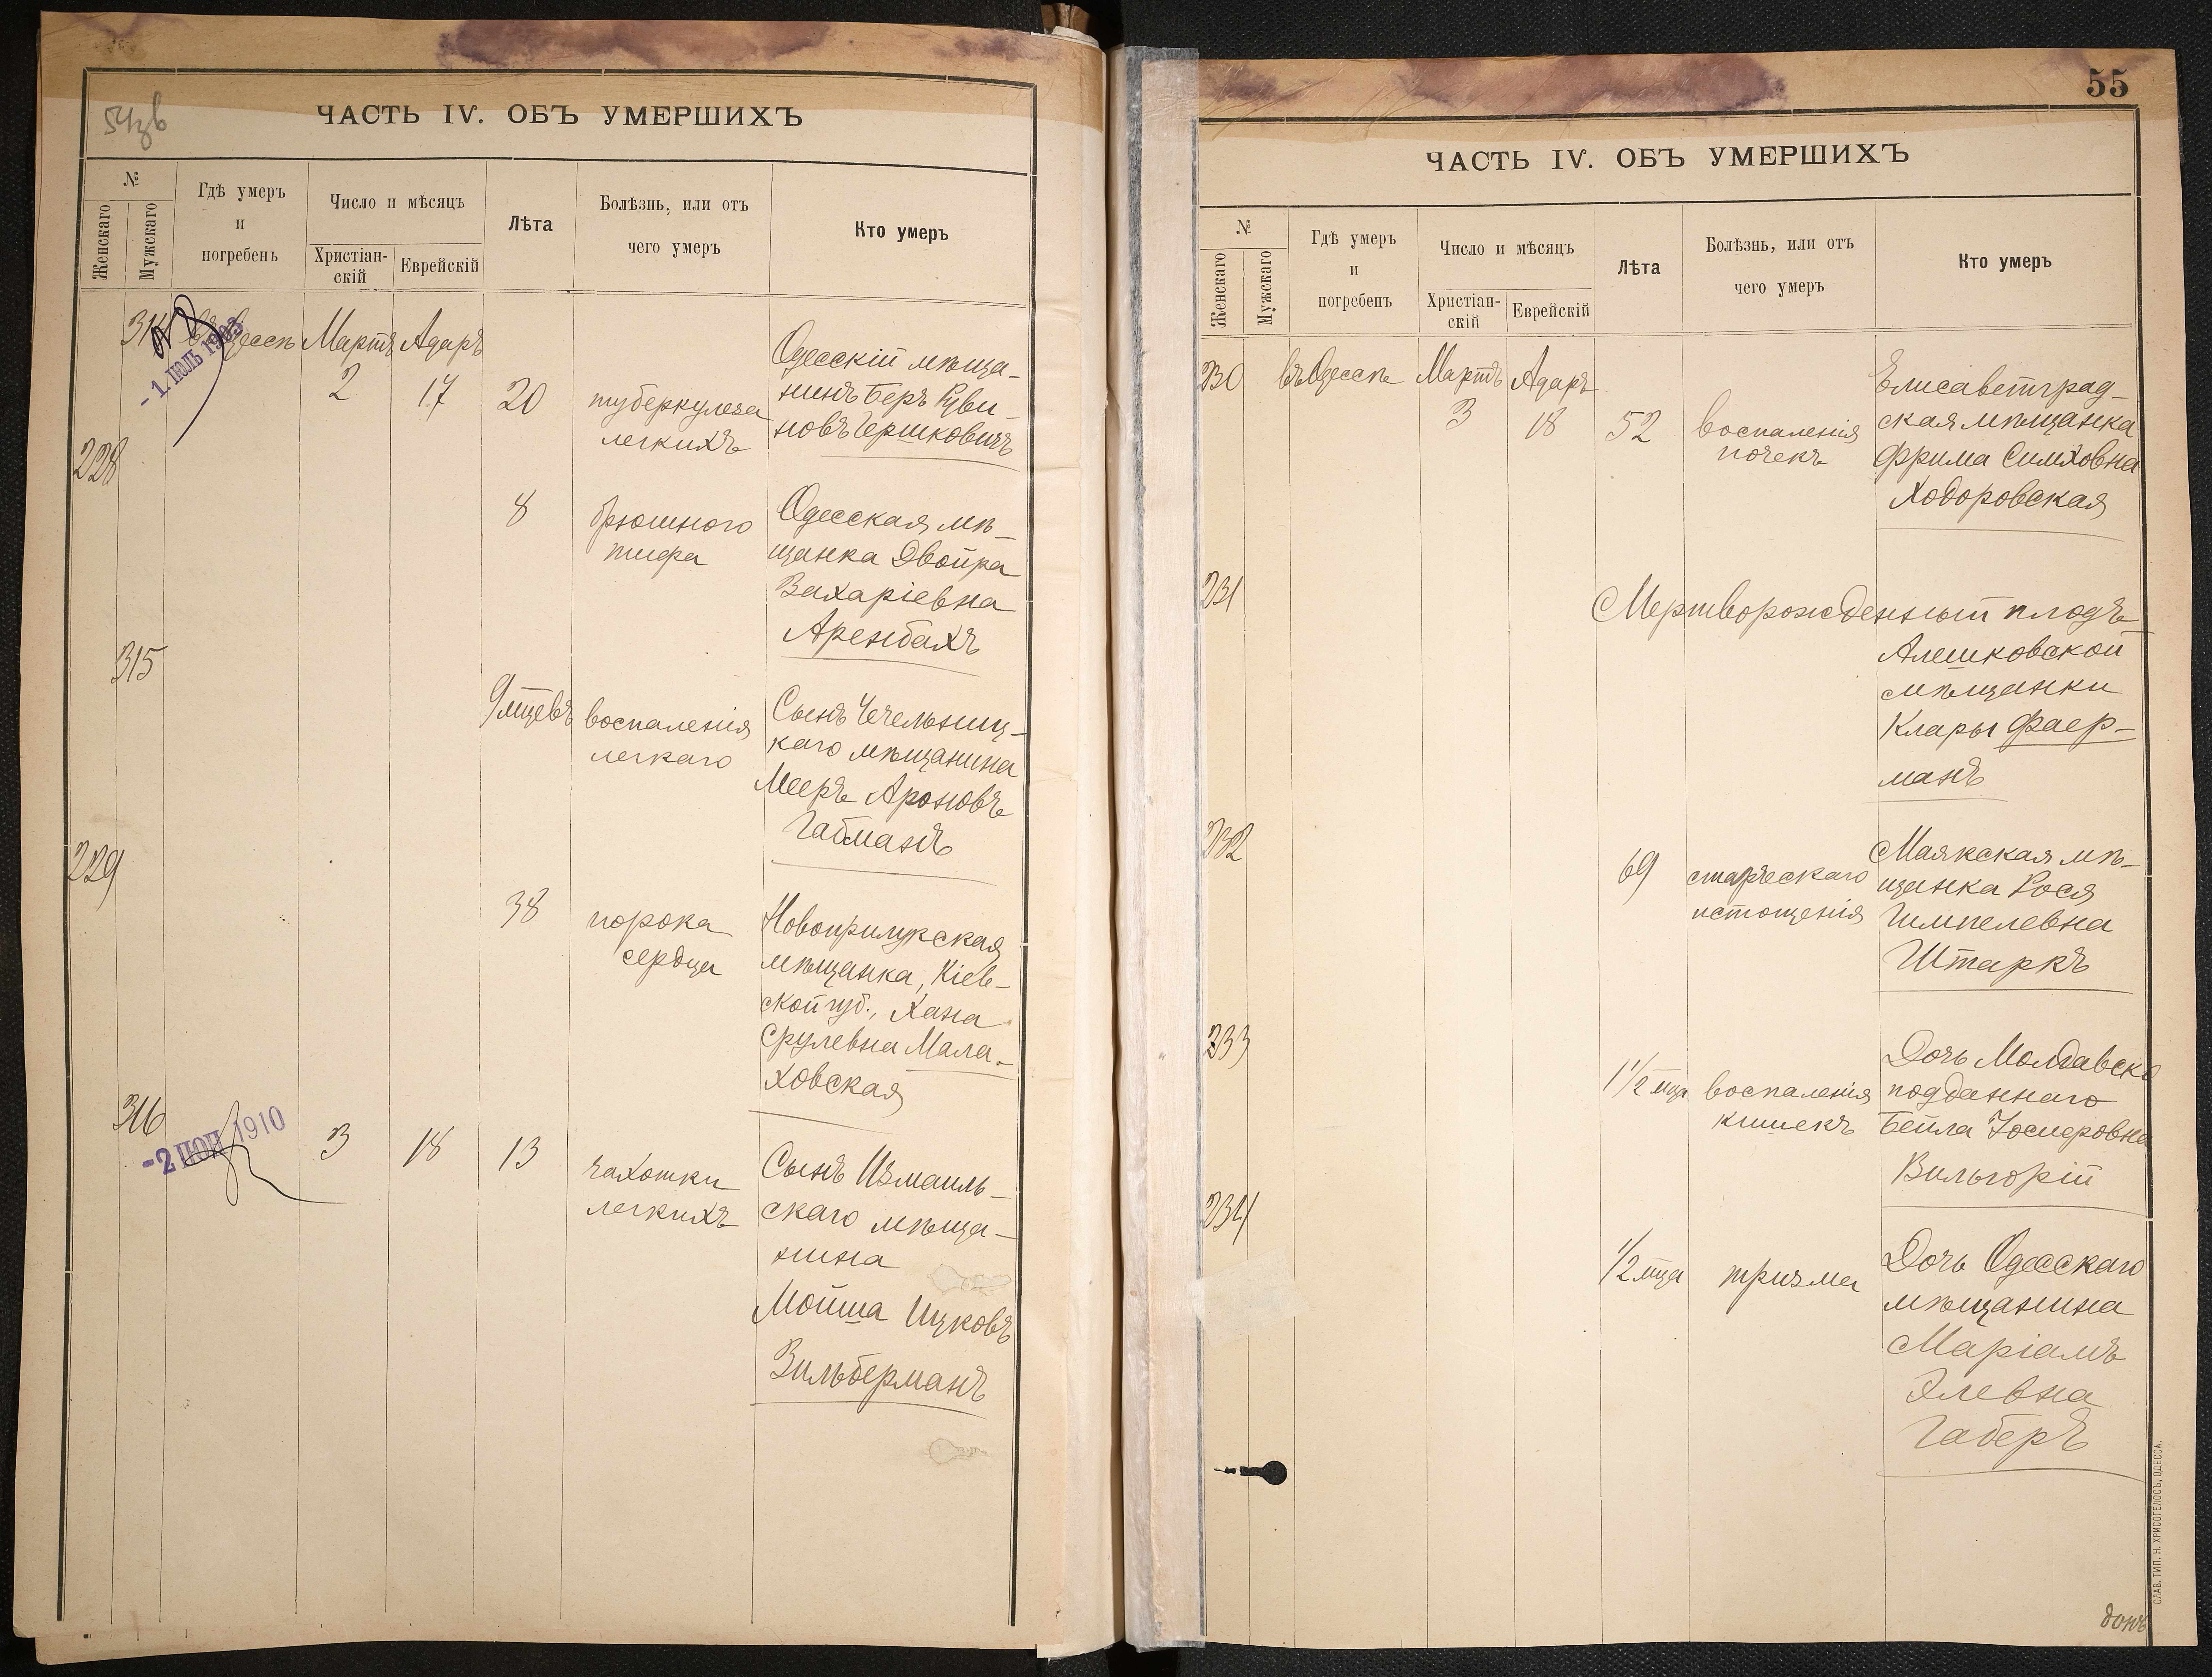 54зв
ЧАСТЬ IV. ОБЪ УМЕРШИХЪ
№
Женскаго
Мужскаго
Гдѣ умеръ
и
погребенъ
Число и мѣсяцъ
Христіан-
скій
Еврейскій
Лѣта
Болѣзнь, или отъ
чего умеръ
Кто умеръ
314
въ Одессѣ
-1. ІЮЛЬ 1903
Мартъ
2
Адаръ
17
20
туберкулеза
легкихъ
Одесскій мѣща-
нинъ Беръ Руви-
новъ Гершковичъ
228
8
брюшного
тифа
Одесская мѣ-
щанка Двойра
Захаріевна
Аренбахъ
315
9 мцевъ
воспаленія
легкаго
Сынъ Чечельниц-
каго мѣщанина
Мееръ Ароновъ
Гайманъ
229
38
порока
сердца
Новоприлукская
мѣщанка, Кіев-
ской губ., Хана
Срулевна Мала-
ховская
316
-2 1910
3
18
13
чахотки
легкихъ
Сынъ Измаиль-
скаго мѣща-
нина
Мойша Ицковъ
Зильберманъ
55
ЧАСТЬ IV. ОБЪ УМЕРШИХЪ
№
Женскаго
Мужскаго
Гдѣ умеръ
и
погребенъ
Число и мѣсяцъ
Христіан-
скій
Еврейскій
Лѣта
Болѣзнь, или отъ
чего умеръ
Кто умеръ
230
въ Одессѣ
Мартъ
3
Адаръ
18
52
воспаленія
почекъ
Елисаветград-
ская мѣщанка
Фрима Симховна
Ходоровская
231
Мертворожденный плодъ
Алешковской
мѣщанки
Клары Фаер-
манъ
232
69
старческаго
истощенія
Маякская мѣ-
щанка Рося
Гимпелевна
Штаркъ
233
1 1/2 мца
воспаленія
кишекъ
Дочь Молдавско
подданнаго
Бейла Іосиеровна
Вильгорій
234
1/2 мца
тризма
Дочь Одесскаго
мѣщанина
Маріамъ
Элевна
Габеръ
СЛАВ. ТИП. Н. ХРИСОГЕЛОСЪ, ОДЕССА.